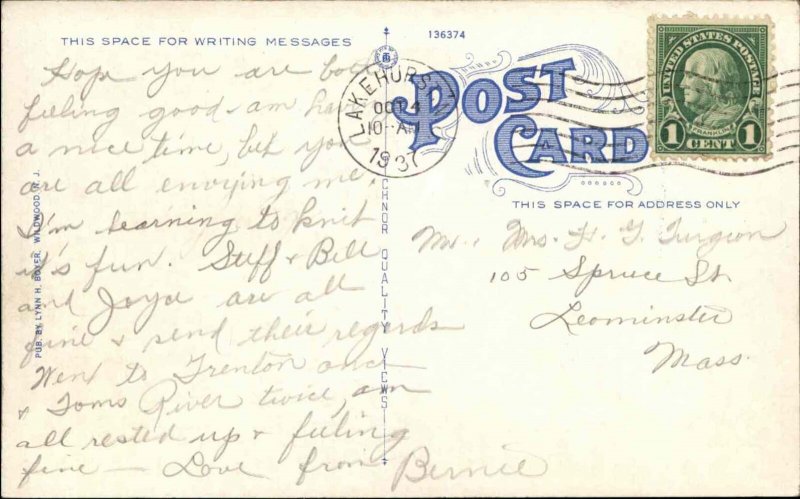 THIS SPACE FOR WRITING MESSAGES
136374
Hope you are both
feeling good - am having
a nice time, bet you
are all envying me.
I'm learning to knit
it's fun. & Bill
and Joyce are all
fine & send their regards
Went to Trenton once
& Toms River twice, am
all rested up & feeling
fine — Love from Bernie
PUB. BY LYNN H. BOYER, WILDWOOD, N. J.
LAKEHURST
OCT 4
10-AM
1937
POST
CARD
UNITED STATES POSTAGE
FRANKLIN
1 CENT 1
THIS SPACE FOR ADDRESS ONLY
Mr. & Mrs. H. G. Turgeon
105 Spruce St.
Leominster
Mass.
CHNOR QUALITY VIEWS